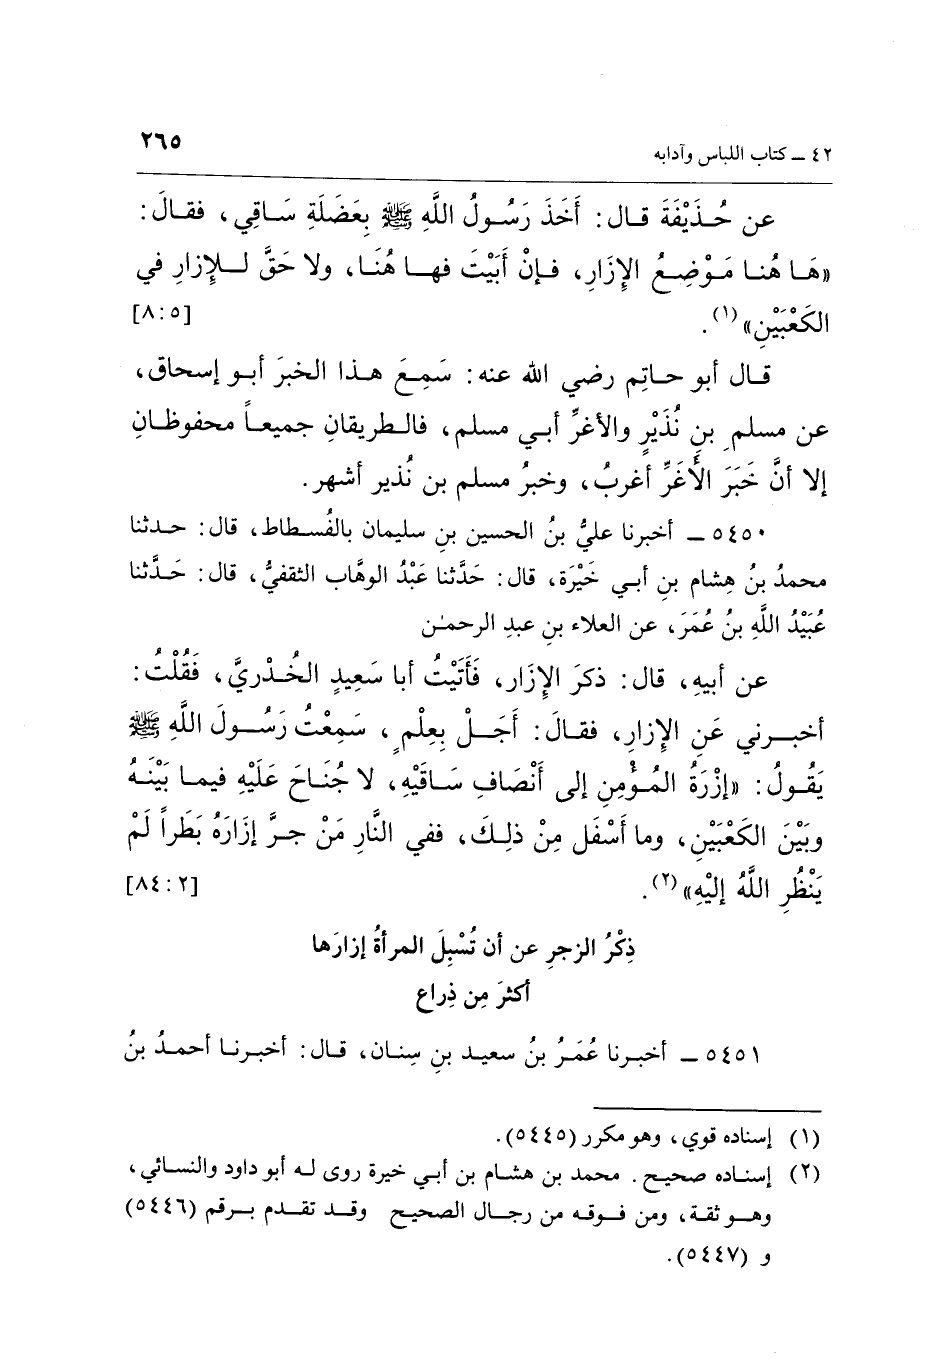 ٤٢ ــ كتاب اللباس وآدابه ٢٦٥
عن حُذَيْفَةَ قال: أَخَذَ رَسُولُ اللَّهِ ﷺ بِعَضَلَةِ سَاقِي، فقالَ:
«هَا هُنا مَوْضِعُ الإِزَارِ، فإنْ أَبَيْتَ فهـا هُنَا، ولا حَقَّ لـلإزارِ في
الكَعْبَيْنِ»(١). [٥: ٨]
قـال أبو حـاتِم رضي الله عنه: سَمِـعَ هـذا الخبرَ أبـو إسحاق،
عن مسلمِ بنِ نُذَيْرٍ والأغرِّ أبـي مسلم، فالـطريقانِ جميعـاً محفوظـانِ
إلا أنَّ خَبَرَ الأَغَرِّ أغربُ، وخبرُ مسلم بن نُذير أشهر.
٥٤٥٠ ــ أخبرنا عليُّ بنُ الحسين بنِ سليمان بالفُسطاط، قال: حـدثنا
محمدُ بنُ هِشام بنِ أبـي خَيْرَة، قال: حَدَّثنا عَبْدُ الوهَّاب الثقفيُّ، قال: حَـدَّثنا
عُبَيْدُ اللَّهِ بنُ عُمَرَ، عن العلاء بنِ عبدِ الرحمٰن
عن أبيهِ، قال: ذكرَ الإزَار، فَأَتَيْتُ أبا سَعِيدٍ الخُـدْريَّ، فَقُلْتُ:
أخبـرني عَنِ الإزارِ، فقـالَ: أَجَـلْ بِعِلْمٍ، سَمِعْتُ رَسُـولَ اللَّهِ ﷺ
يَقُـولُ: «إزْرَةُ المُـؤْمِنِ إلى أَنْصَافِ سَـاقَيْهِ، لا جُنَاحَ عَلَيْهِ فيمـا بَيْنَـهُ
وبَيْنَ الكَعْبَيْنِ، وما أَسْفَل مِنْ ذلِـكَ، ففي النَّارِ مَنْ جـرَّ إزَارَهُ بَطَراً لَمْ
يَنْظُرِ اللَّهُ إليْهِ»(٢). [٢: ٨٤]
ذِكْرُ الزجرِ عن أن تُسْبِلَ المرأةُ إزارَها
أكثرَ مِن ذِراع
٥٤٥١ ــ أخبـرنا عُمَـرُ بنُ سعيـد بنِ سِنـان، قـال: أخبـرنـا أحمـدُ بنُ
(١) إسناده قوي، وهو مكرر (٥٤٤٥).
(٢) إسنـاده صحيـح. محمـد بن هشـام بن أبي خيرة روى لـه أبو داود والنسـائي،
وهـو ثقـة، ومن فـوقـه من رجـال الصحيـح وقـد تقـدم بـرقم (٥٤٤٦)
و (٥٤٤٧).